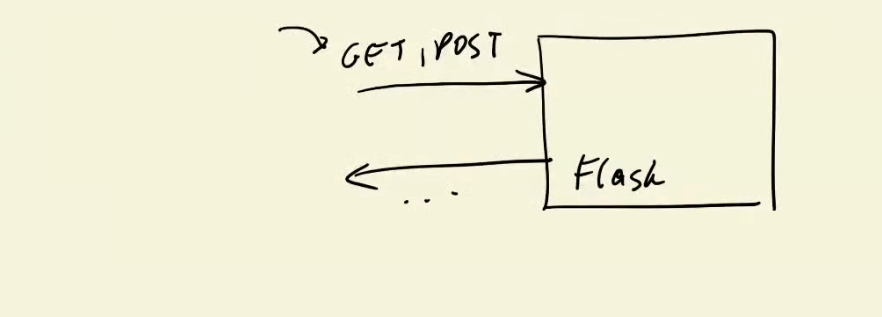 GET, POST
Flask
...